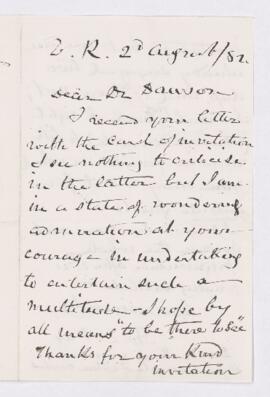 2d August/82
Dear Dr Dawson
I recd your letter
with the card of invitation
I see nothing to criticise
in the latter but I am
in a state of wondering
admiration at your
courage in undertaking
to entertain such a
multitude - I hope by
all means "to be there to see"
Thanks for your kind
invitation